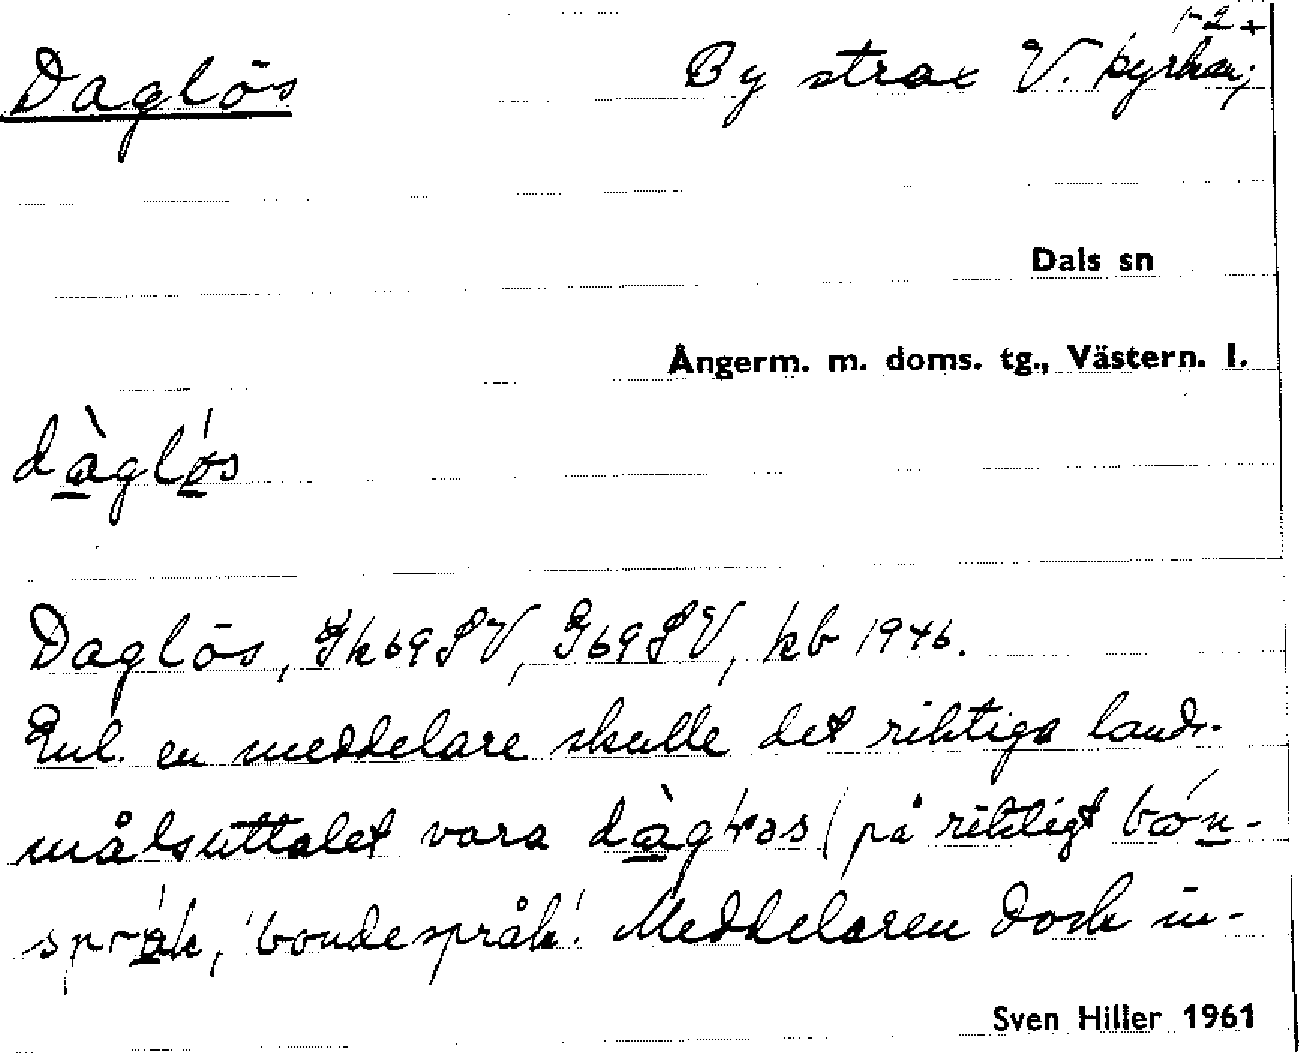 1-2 +
Daglös By strax V. kyrkan;
Dals sn
Ångerm. m. doms. tg., Västern. l.
dàgløs
Daglös, Gk69SV, G69SV, kb 1946.
Enl. en meddelare skulle det riktiga lands-
målsuttalet vara (på riktigt bón-
språk, 'bondespråk'. Meddelaren dock in-
Sven Hiller 1961